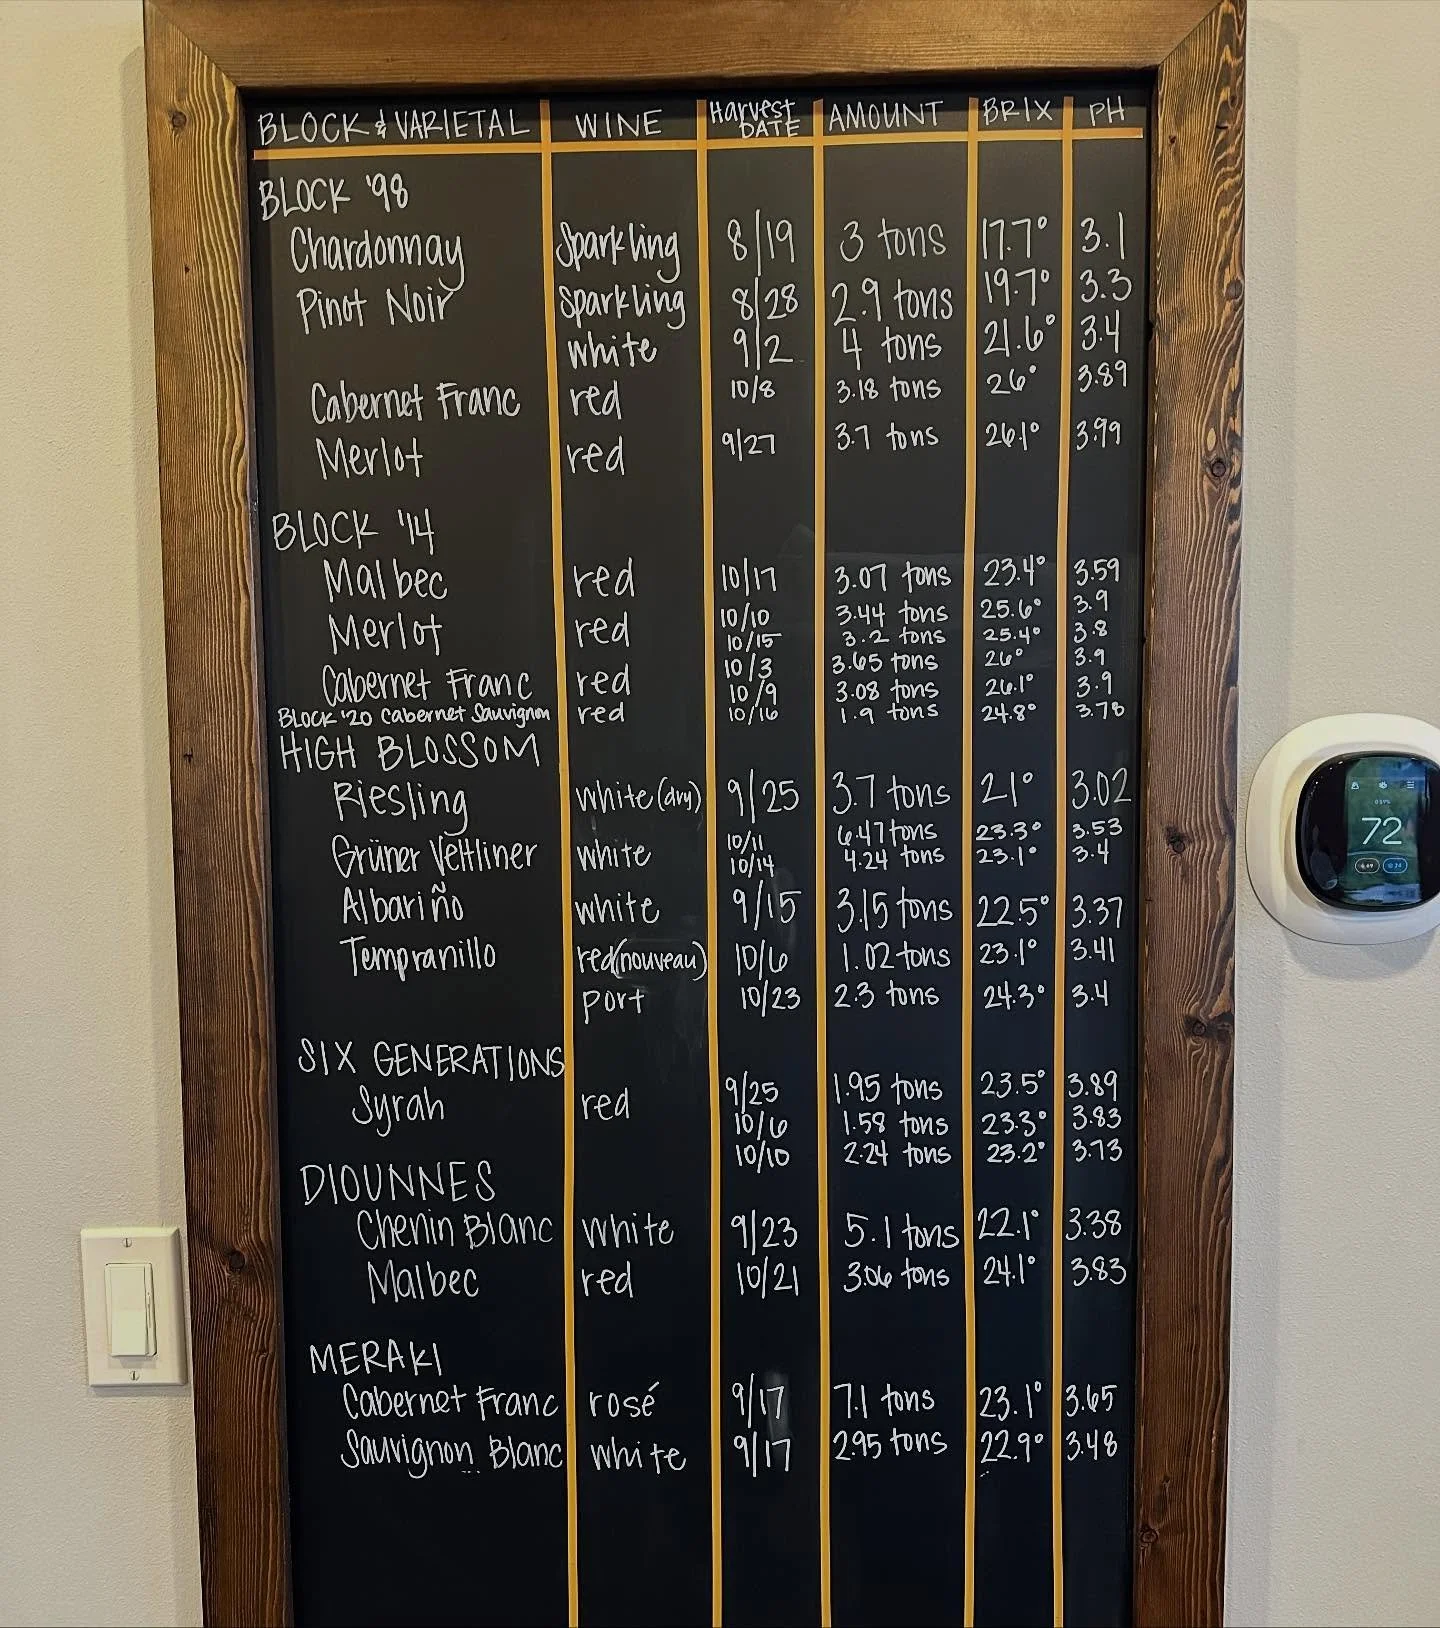 BLOCK & VARIETAL WINE Harvest DATE AMOUNT BRIX PH
BLOCK '98
Chardonnay Sparkling 8/19 3 tons 17.7° 3.1
Pinot Noir Sparkling 8/28 2.9 tons 19.7° 3.3
white 9/2 4 tons 21.6° 3.4
Cabernet Franc red 10/8 3.18 tons 26° 3.89
Merlot red 9/27 3.7 tons 26.1° 3.99
BLOCK '14
Malbec red 10/17 3.07 tons 23.4° 3.59
Merlot red 10/10 3.44 tons 25.6° 3.9
10/15 3.2 tons 25.4° 3.8
Cabernet Franc red 10/3 3.65 tons 26° 3.9
10/9 3.08 tons 26.1° 3.9
BLOCK '20 Cabernet Sauvignon red 10/16 1.9 tons 24.8° 3.78
HIGH BLOSSOM
Riesling white (dry) 9/25 3.7 tons 21° 3.02
Grüner Veltliner white 10/11 6.47 tons 23.3° 3.53
10/14 4.24 tons 23.1° 3.4
Albariño white 9/15 3.15 tons 22.5° 3.37
Tempranillo red (nouveau) 10/6 1.02 tons 23.1° 3.41
port 10/23 2.3 tons 24.3° 3.4
SIX GENERATIONS
Syrah red 9/25 1.95 tons 23.5° 3.89
10/6 1.58 tons 23.3° 3.83
10/10 2.24 tons 23.2° 3.73
DIOUNNES
Chenin Blanc white 9/23 5.1 tons 22.1° 3.38
Malbec red 10/21 3.06 tons 24.1° 3.83
MERAKI
Cabernet Franc rosé 9/17 7.1 tons 23.1° 3.65
Sauvignon Blanc white 9/17 2.95 tons 22.9° 3.48
72